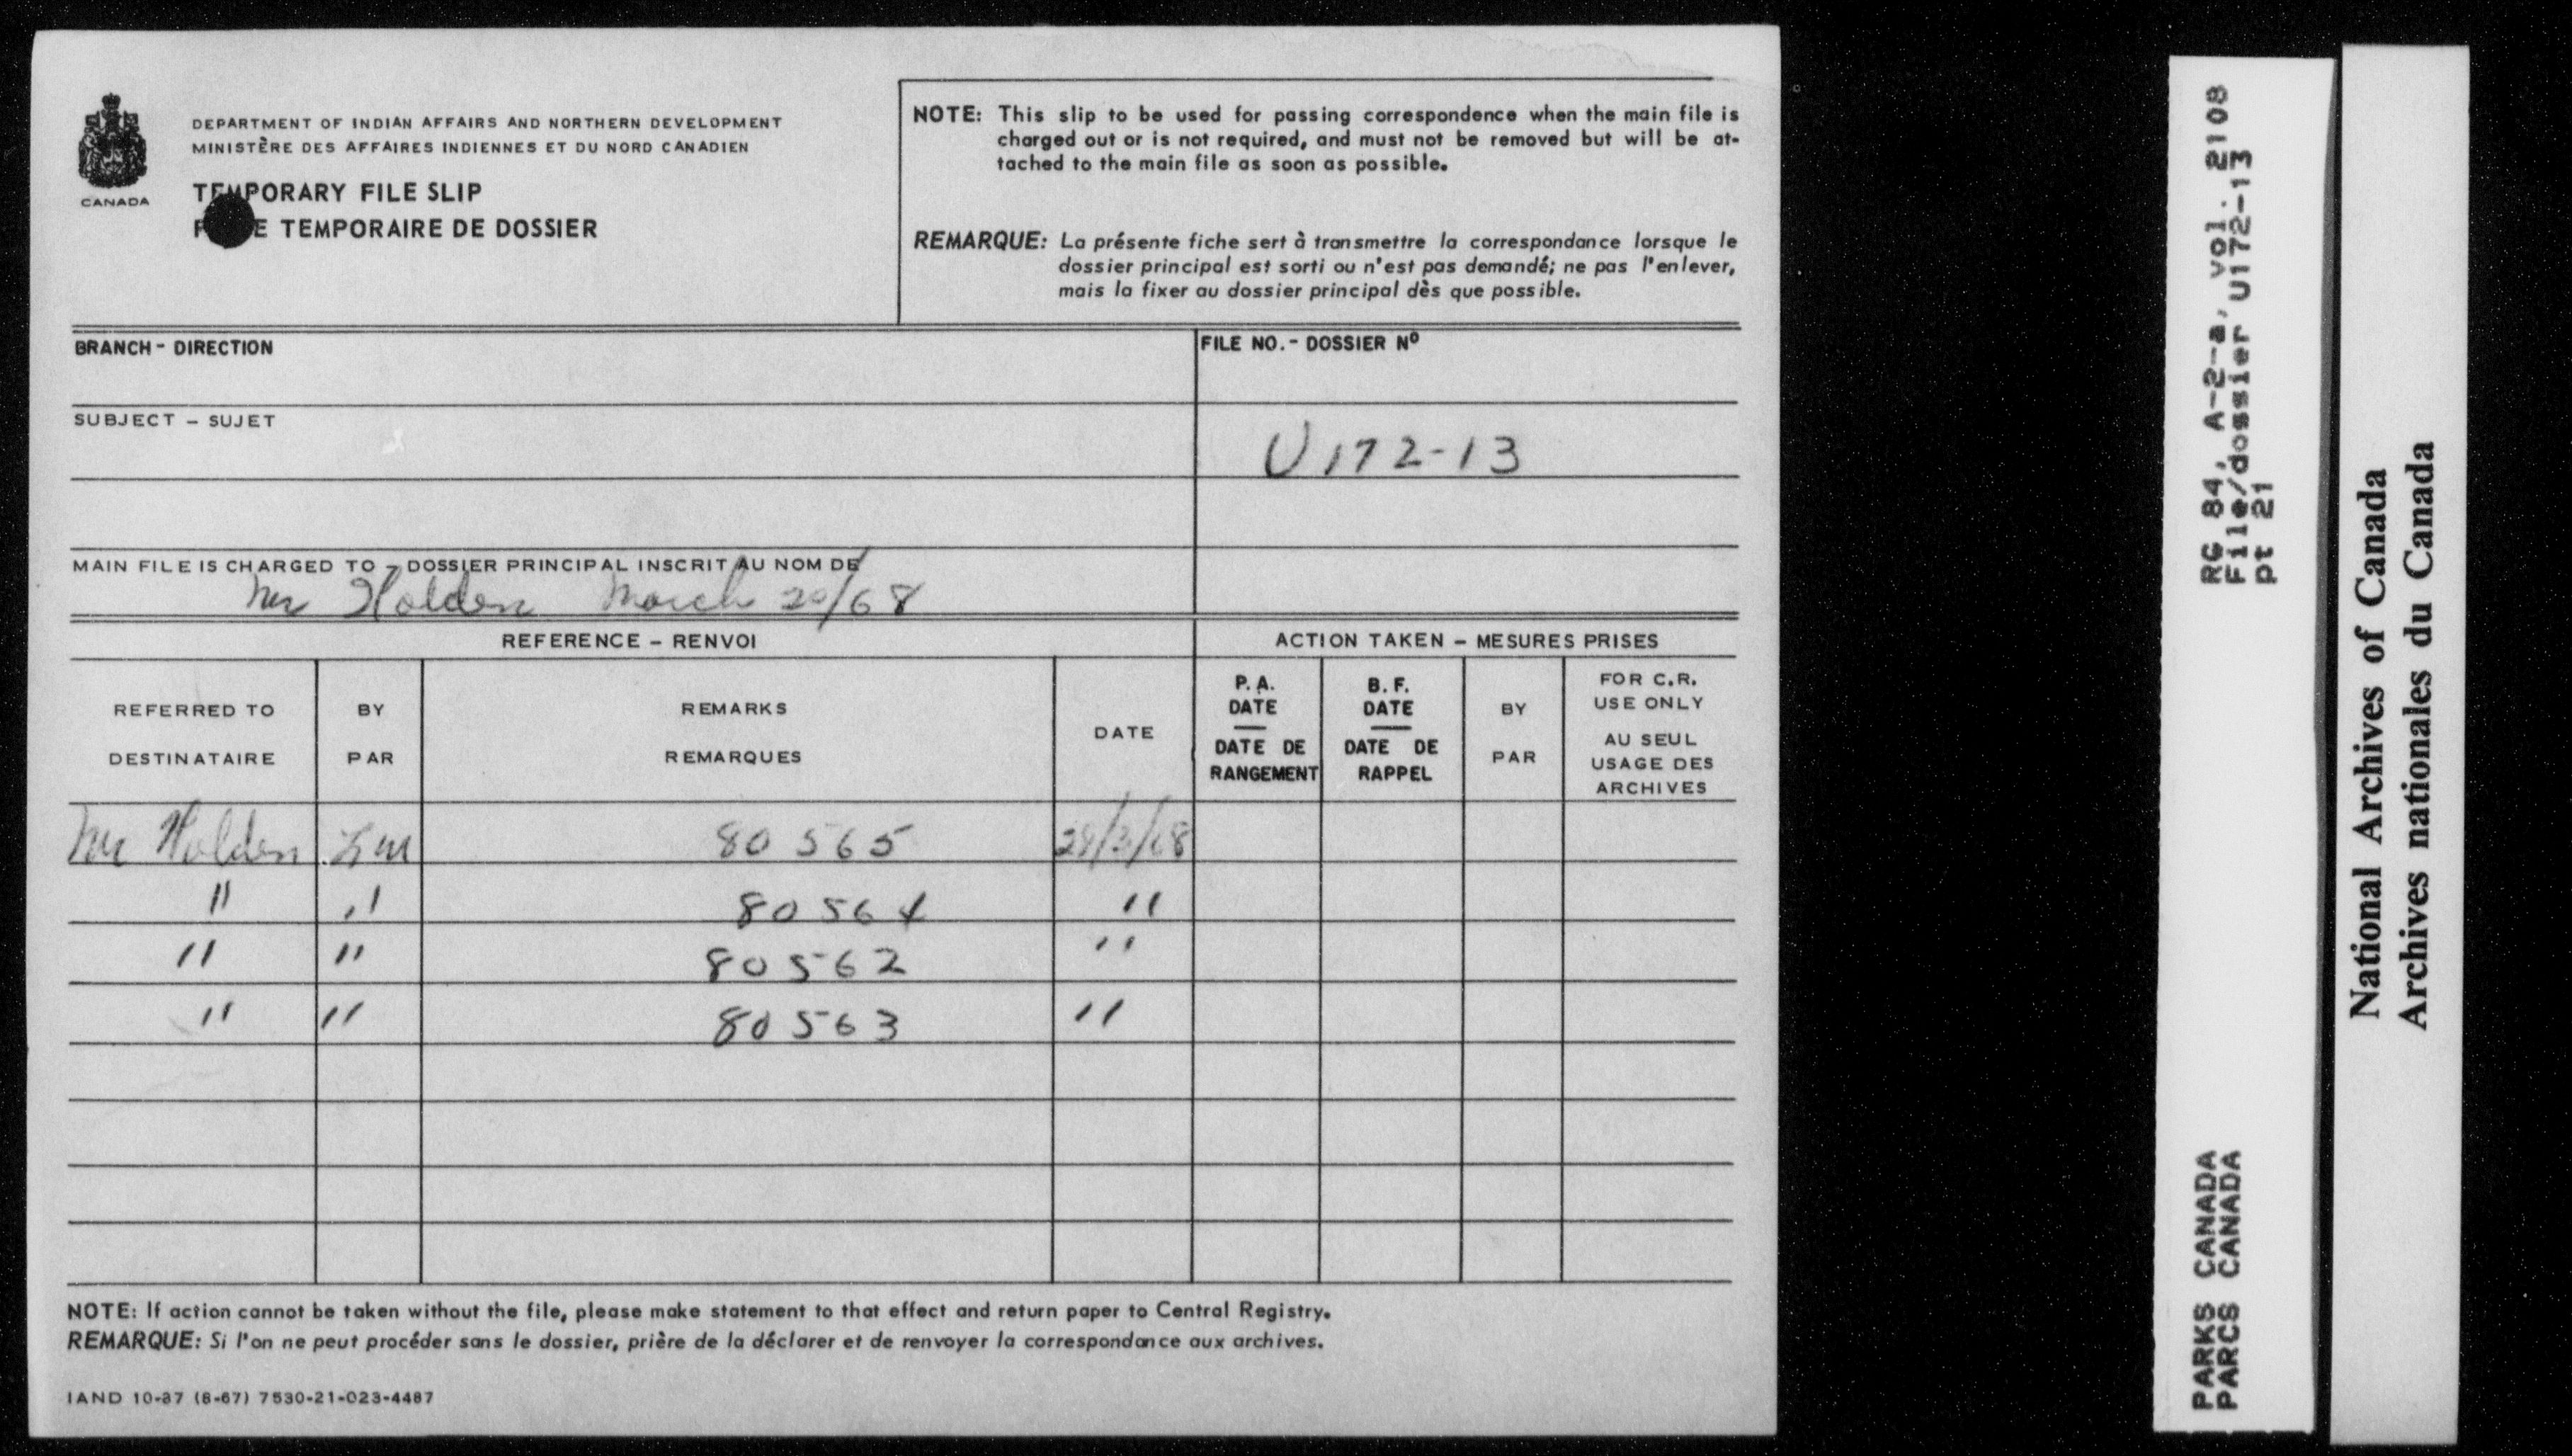 CANADA
DEPARTMENT OF INDIAN AFFAIRS AND NORTHERN DEVELOPMENT
MINISTÈRE DES AFFAIRES INDIENNES ET DU NORD CANADIEN
TEMPORARY FILE SLIP
TEMPORAIRE DE DOSSIER
NOTE: This slip to be used for passing correspondence when the main file is
charged out or is not required, and must not be removed but will be at-
tached to the main file as soon as possible.
REMARQUE: La présente fiche sert à transmettre la correspondance lorsque le
dossier principal est sorti ou n'est pas demandé; ne pas l'enlever,
mais la fixer au dossier principal dès que possible.
BRANCH - DIRECTION
FILE NO. - DOSSIER Nº
SUBJECT - SUJET
U172-13
MAIN FILE IS CHARGED TO - DOSSIER PRINCIPAL INSCRIT AU NOM DE
Mr Holden March 20/68
REFERENCE - RENVOI
ACTION TAKEN - MESURES PRISES
REFERRED TO
DESTINATAIRE
BY
PAR
REMARKS
REMARQUES
DATE
P.A.
DATE
DATE DE
RANGEMENT
B.F.
DATE
DATE DE
RAPPEL
BY
PAR
FOR C.R.
USE ONLY
AU SEUL
USAGE DES
ARCHIVES
Mr Holden 80565 28/3/68
" " 80564 "
" " 80562 "
" " 80563 "
NOTE: If action cannot be taken without the file, please make statement to that effect and return paper to Central Registry.
REMARQUE: Si l'on ne peut procéder sans le dossier, prière de la déclarer et de renvoyer la correspondance aux archives.
IAND 10-37 (8-67) 7530-21-023-4487
RG 84, A-2-a, vol. 2108
File/dossier U172-13
pt 21
PARKS CANADA
PARCS CANADA
National Archives of Canada
Archives nationales du Canada